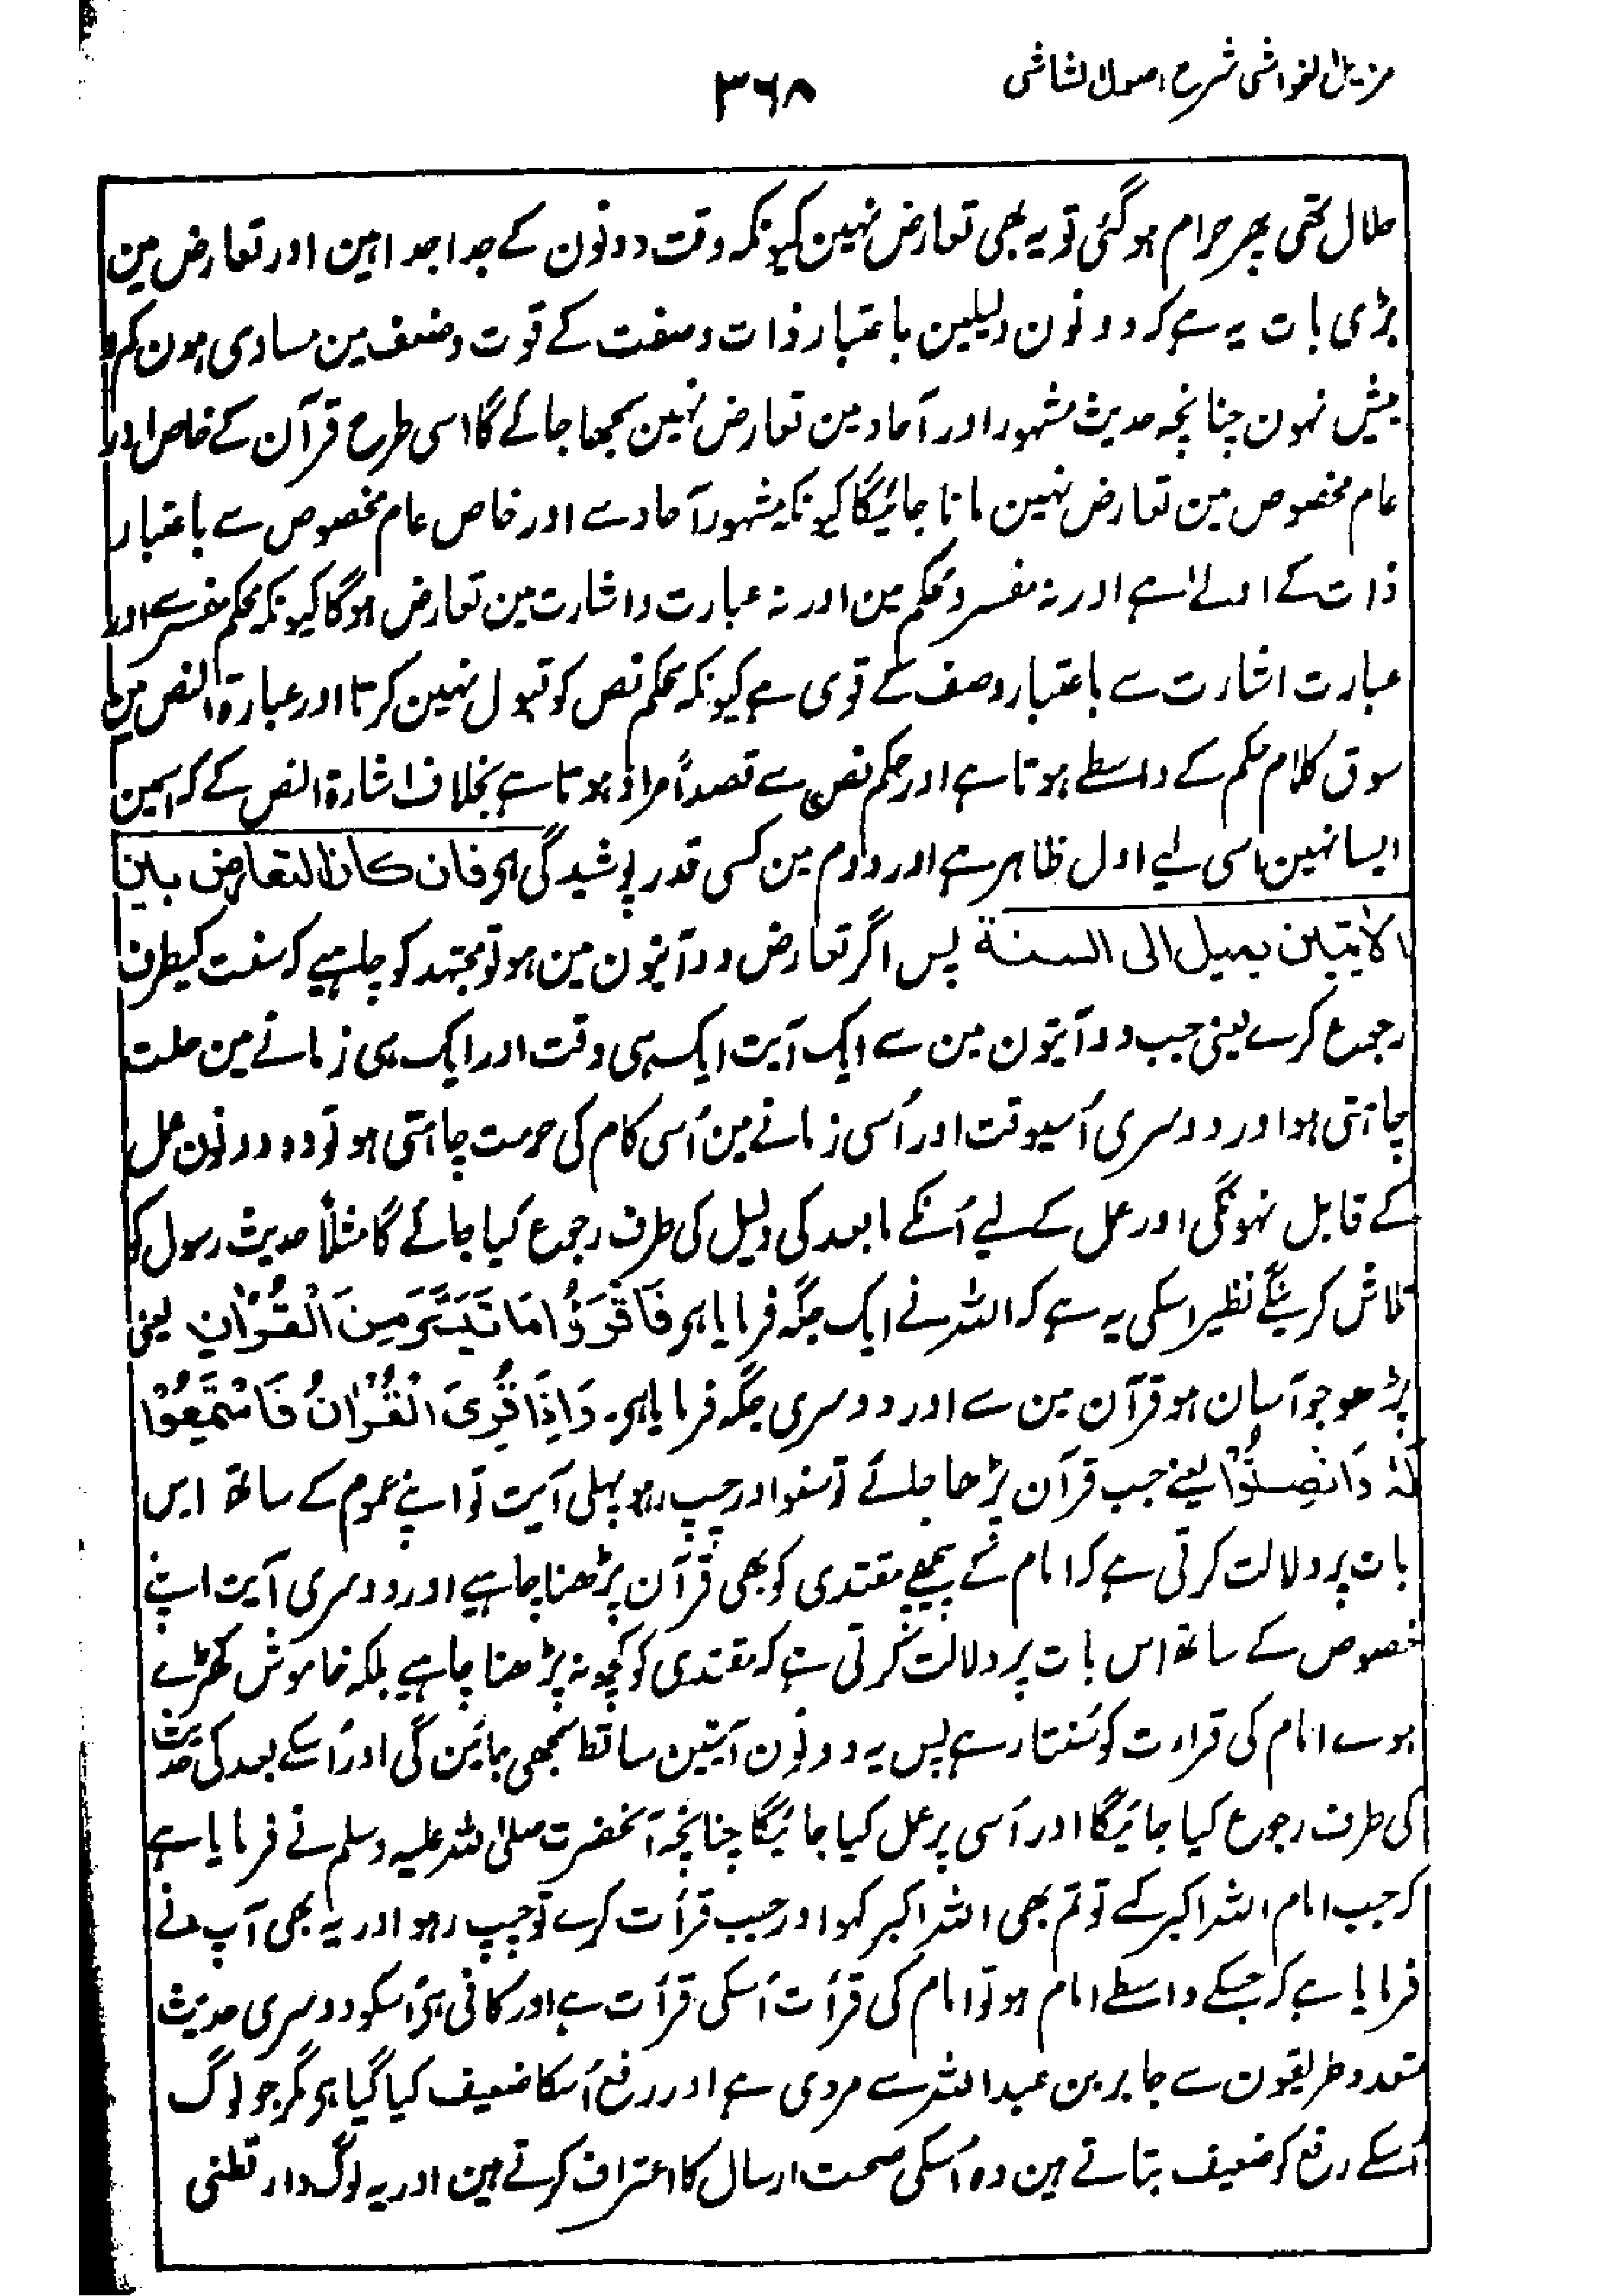 مزیل الغواشی شرح اصول الشاشی
۳۶۸
حلال تھی پھر حرام ہوگئی تو یہ بھی تعارض نہین کیونکہ وقت دونون کے جدا جدا ہین اور تعارض مین
بڑی بات یہ ہے کہ دونون دلیلین باعتبار ذات وصفت کے قوت وضعف مین مساوی ہون کم و
بیش نہون چنانچہ حدیث مشہور اور آحاد مین تعارض نہین سمجھا جائے گا اسی طرح قرآن کے خاص اور
عام مخصوص مین تعارض نہین مانا جائیگا کیونکہ مشہور آحاد سے اور خاص عام مخصوص سے باعتبار
ذات کے اولےٰ ہے اور نہ مفسر ومحکم مین اور نہ عبارت واشارت مین تعارض ہوگا کیونکہ محکم مفسر سے اور
عبارت اشارت سے باعتبار وصف کے قوی ہے کیونکہ محکم نص کو قبول نہین کرتا اور عبارۃ النص مین
سوق کلام حکم کے واسطے ہوتا ہے اور حکم نص سے قصداً مراد ہوتا ہے بخلاف اشارۃ النص کے کہ اسمین
ایسا نہین اسی لیے اول ظاہر ہے اور دوم مین کسی قدر پوشیدگی ہی فان کان التعارض بین
الاٰیتین یمیل الی السنة پس اگر تعارض دو آیتون مین ہو تو مجتہد کو چاہیے کہ سنت کیطرف
رجوع کرے یعنی جب دو آیتون مین سے ایک آیت ایک ہی وقت اور ایک ہی زمانے مین حلت
چاہتی ہو اور دوسری اُسیوقت اور اُسی زمانے مین اُسی کام کی حرمت چاہتی ہو تو وہ دونون عمل
کے قابل نہونگی اور عمل کے لیے اُنکے مابعد کی دلیل کی طرف رجوع کیا جائے گا مثلاً حدیث رسول کو
تلاش کرینگے نظیر اسکی یہ ہے کہ اللہ نے ایک جگہ فرمایا ہی فَاقْرَءُوْا مَا تَیَسَّرَ مِنَ الْقُرْاٰنِ یعنی
پڑھو جو آسان ہو قرآن مین سے اور دوسری جگہ فرمایا ہی۔ وَاِذَا قُرِیَٔ الْقُرْاٰنُ فَاسْتَمِعُوْا
لَہٗ وَاَنْصِتُوْا یعنے جب قرآن پڑھا جائے تو سنو اور چپ رہو پہلی آیت تو اپنے عموم کے ساتھ اس
بات پر دلالت کرتی ہے کہ امام کے پیچھے مقتدی کو بھی قرآن پڑھنا چاہیے اور دوسری آیت اپنے
خصوص کے ساتھ اس بات پر دلالت کرتی ہے کہ مقتدی کو کچھ نہ پڑھنا چاہیے بلکہ خاموش کھڑے
ہوے امام کی قراءت کو سُنتا رہے پس یہ دونون آیتین ساقط سمجھی جائین گی اور اُسکے بعد کی حدیث
کی طرف رجوع کیا جائیگا اور اُسی پر عمل کیا جائیگا چنانچہ آنحضرت صلی اللہ علیہ وسلم نے فرمایا ہے
کہ جب امام اللہ اکبر کہے تو تم بھی اللہ اکبر کہو اور جب قرأت کرے تو چپ رہو اور یہ بھی آپ نے
فرمایا ہے کہ جسکے واسطے امام ہو تو امام کی قرأت اُسکی قرأت ہے اور کافی ہی اُسکو دوسری حدیث
متعدد طریقون سے جابر بن عبداللہ سے مروی ہے اور رفع اُسکا ضعیف کیا گیا ہی مگر جو لوگ
اُسکے رفع کو ضعیف بتاتے ہین وہ اُسکی صحت ارسال کا اعتراف کرتے ہین اور یہ لوگ دارقطنی